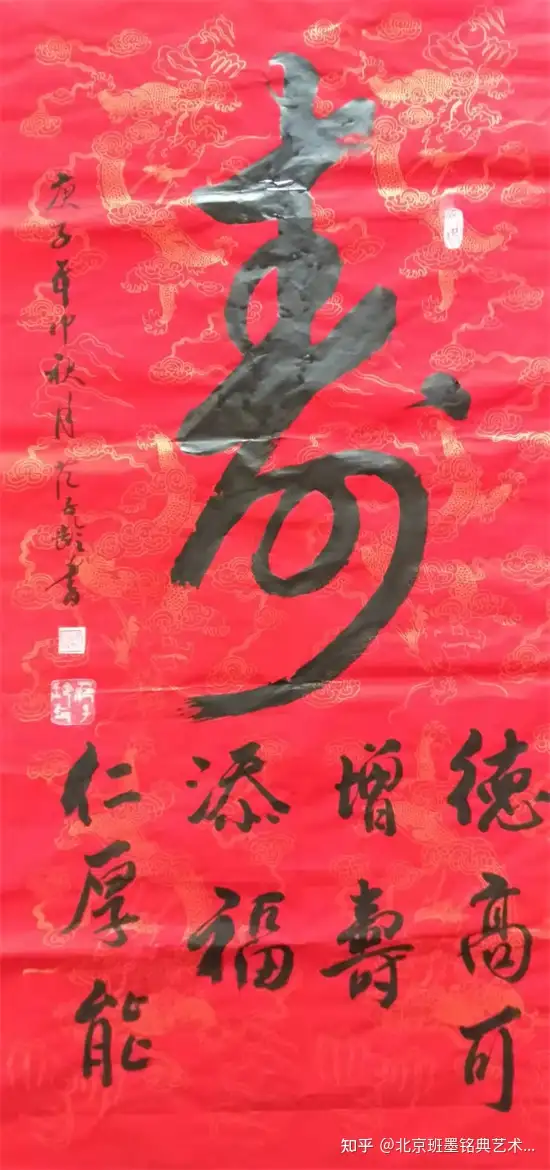 寿
德高可
增壽
添福
仁厚能
庚子年仲秋月范龄書
知乎 @北京班墨铭典艺术...